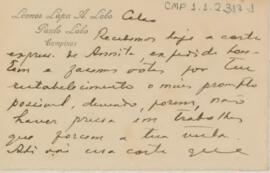 Leonor Lapa A. Lobo
Paulo Lobo
Campinas
CMP 1.1.2.317-1
Celso
Recebemos hoje a carta
express. de Annita expedida hon-
tem e fazemos votos por teu
restabelecimento o mais prompto
possivel, devendo, porem, não
haver pressa em trabalhos
que forcem a tua vista.
Ahi vai essa carta que